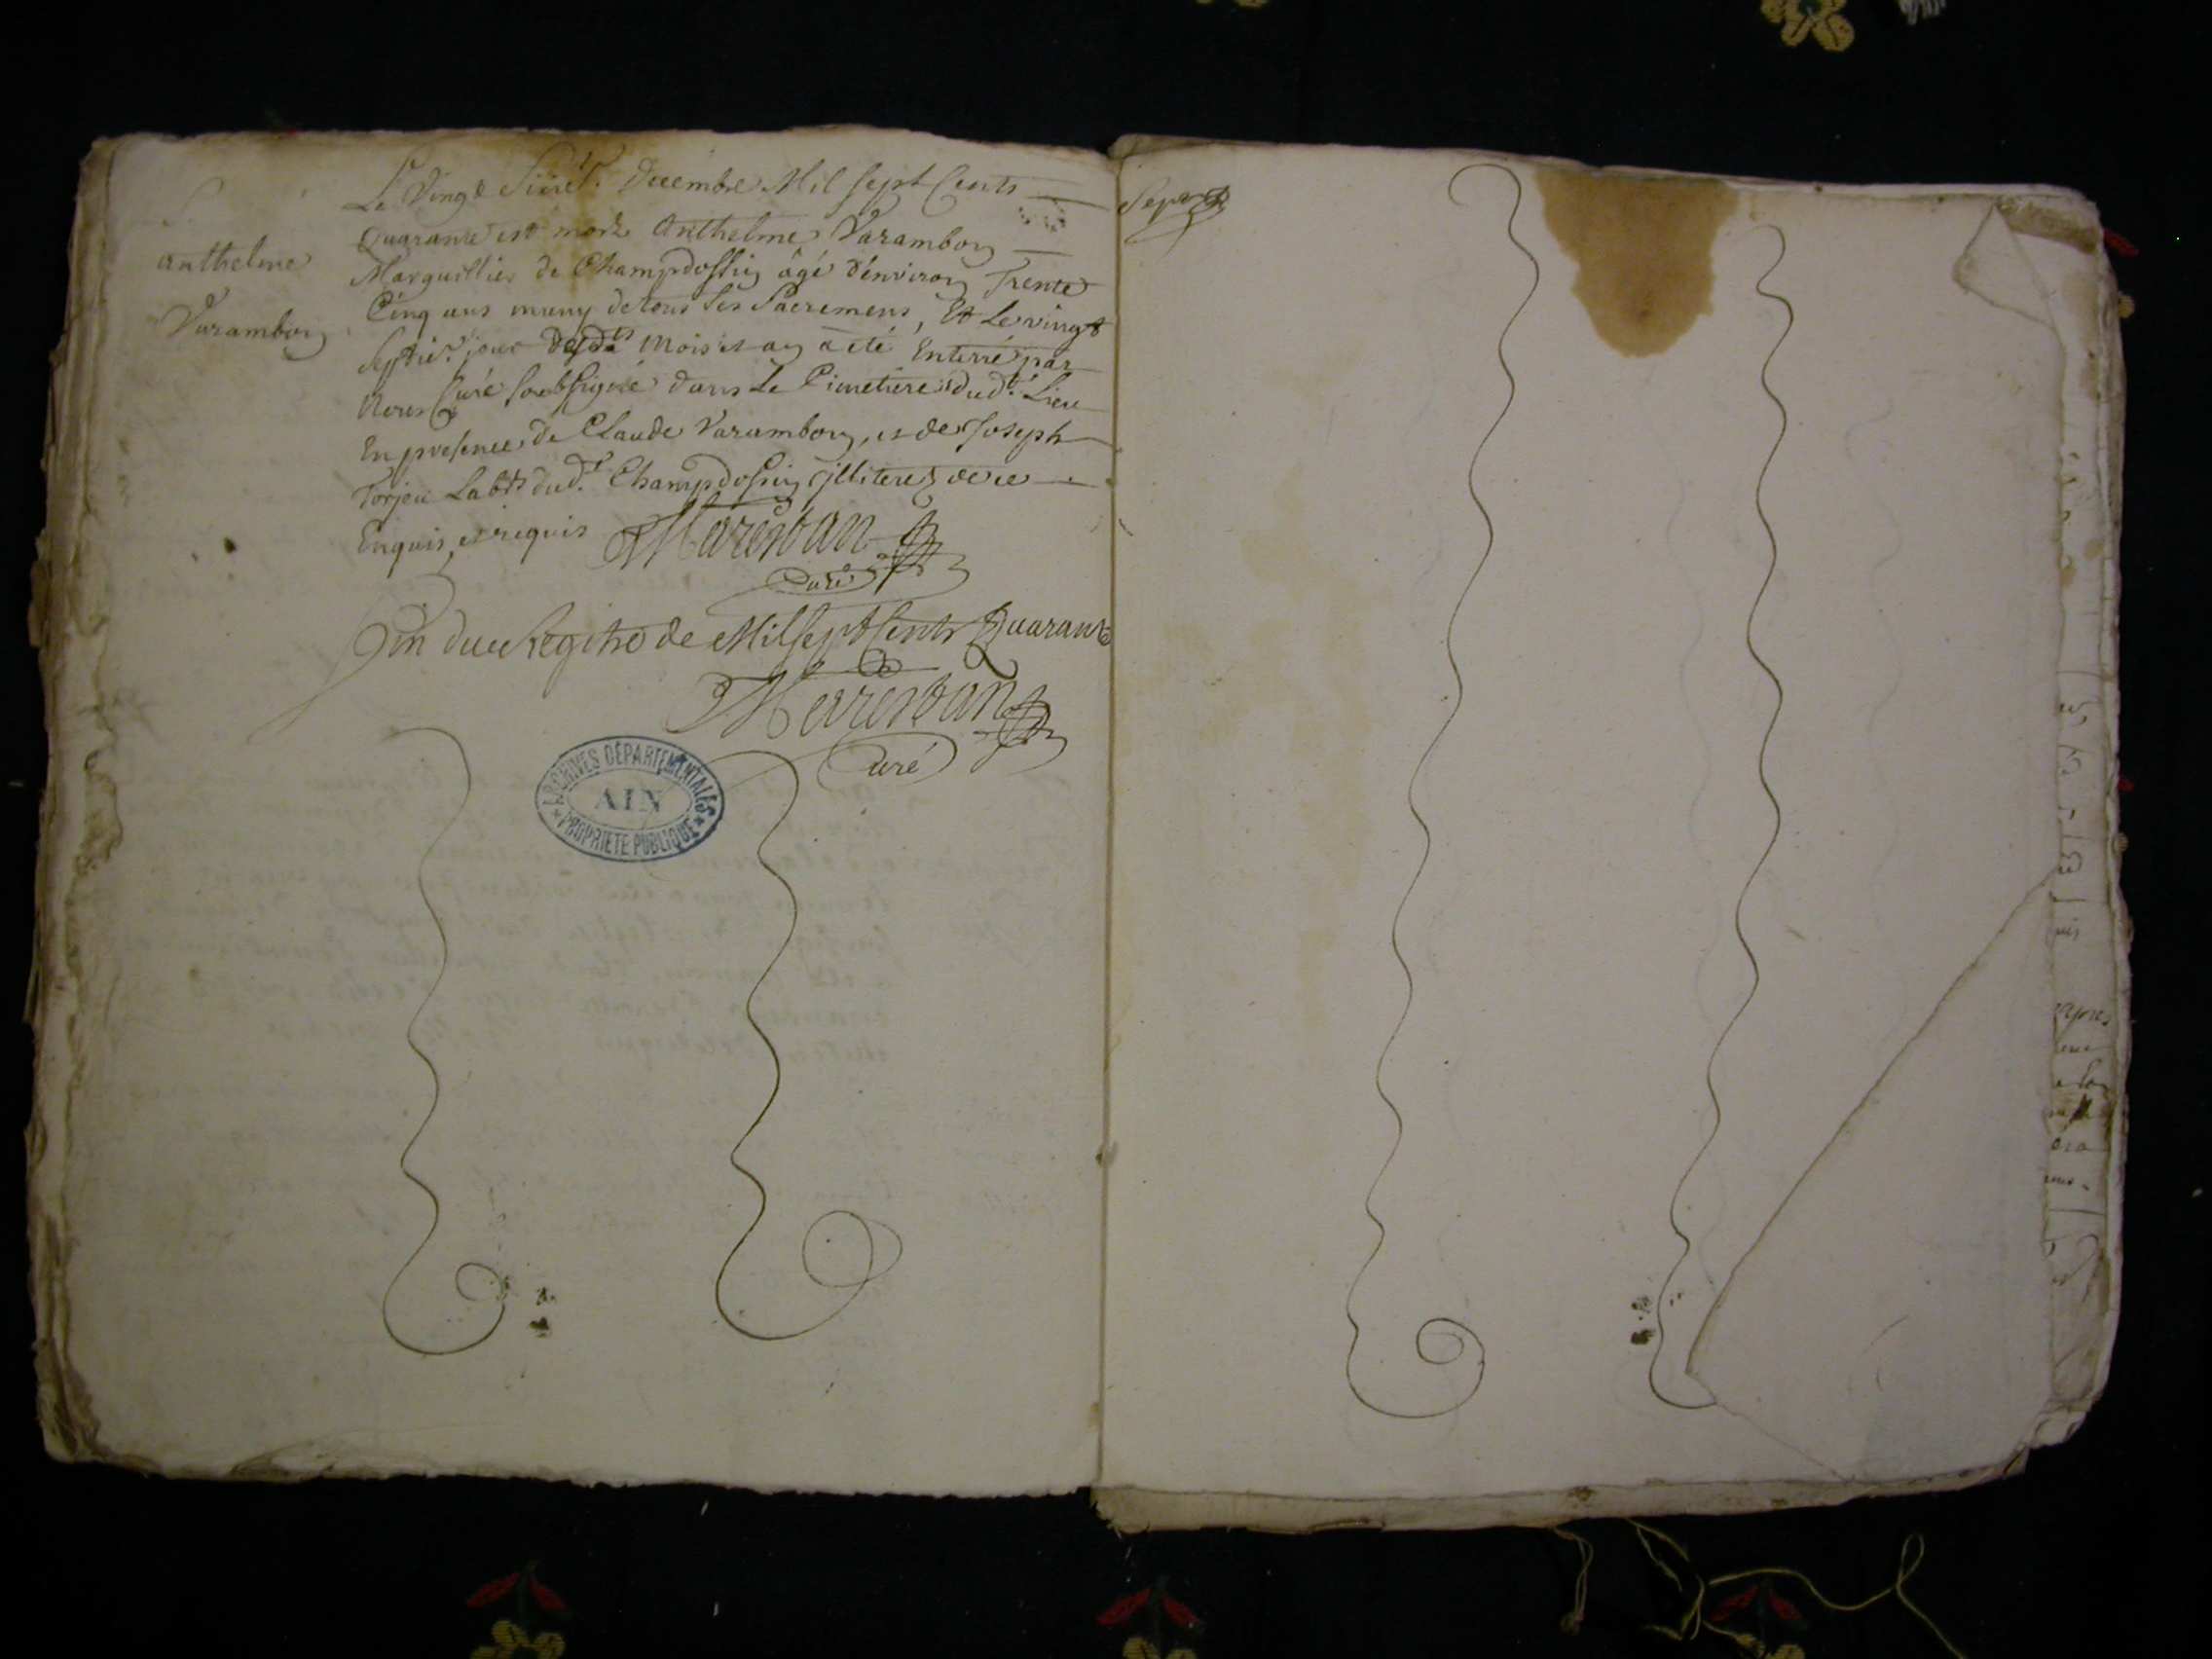 S.
anthelme
Varambon
Le Vingt Sixie.e Decembre Mil Sept Cents
Quarante est mort Anthelme Varambon
Marguillier de Champdossin âgé d'environ Trente
Cinq ans muny de tous Ses Sacremens, Et Le vingt
Septie.e jour desd.ts Mois et an a été Enterré par
Nous Curé Soubsigné dans Le Cimetiere dud.t Lieu
En presence de Claude Varambon, et de Joseph
Torjou Lab.rs dud.t Champdossin jlliterez de ce
Enquis et requis
Marestan
Curé
Fin du Registre de Mil Sept Cents Quarante
Marestan
Curé
ARCHIVES DÉPARTEMENTALES
AIN
PROPRIÉTÉ PUBLIQUE